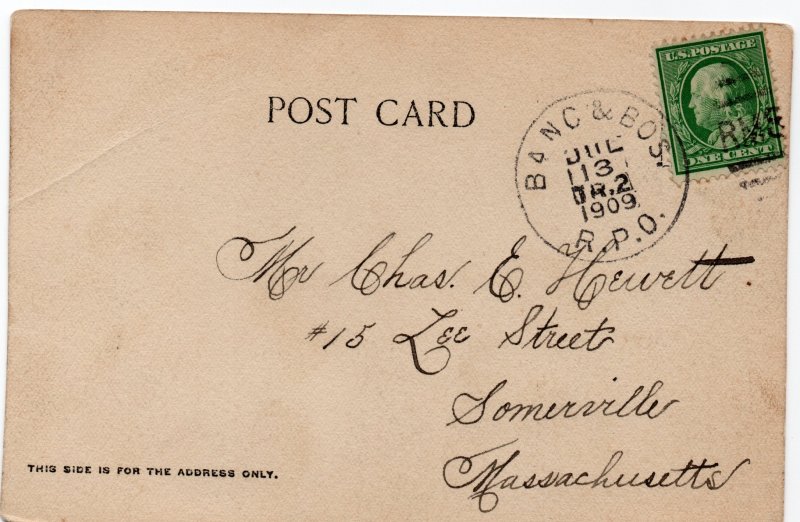 U.S. POSTAGE
ONE CENT
POST CARD
BANG & BOS.
JUL
13
TR.2
1909
R.P.O.
Mr Chas. E. Hewett
#15 Lee Street
Somerville
Massachusetts
THIS SIDE IS FOR THE ADDRESS ONLY.